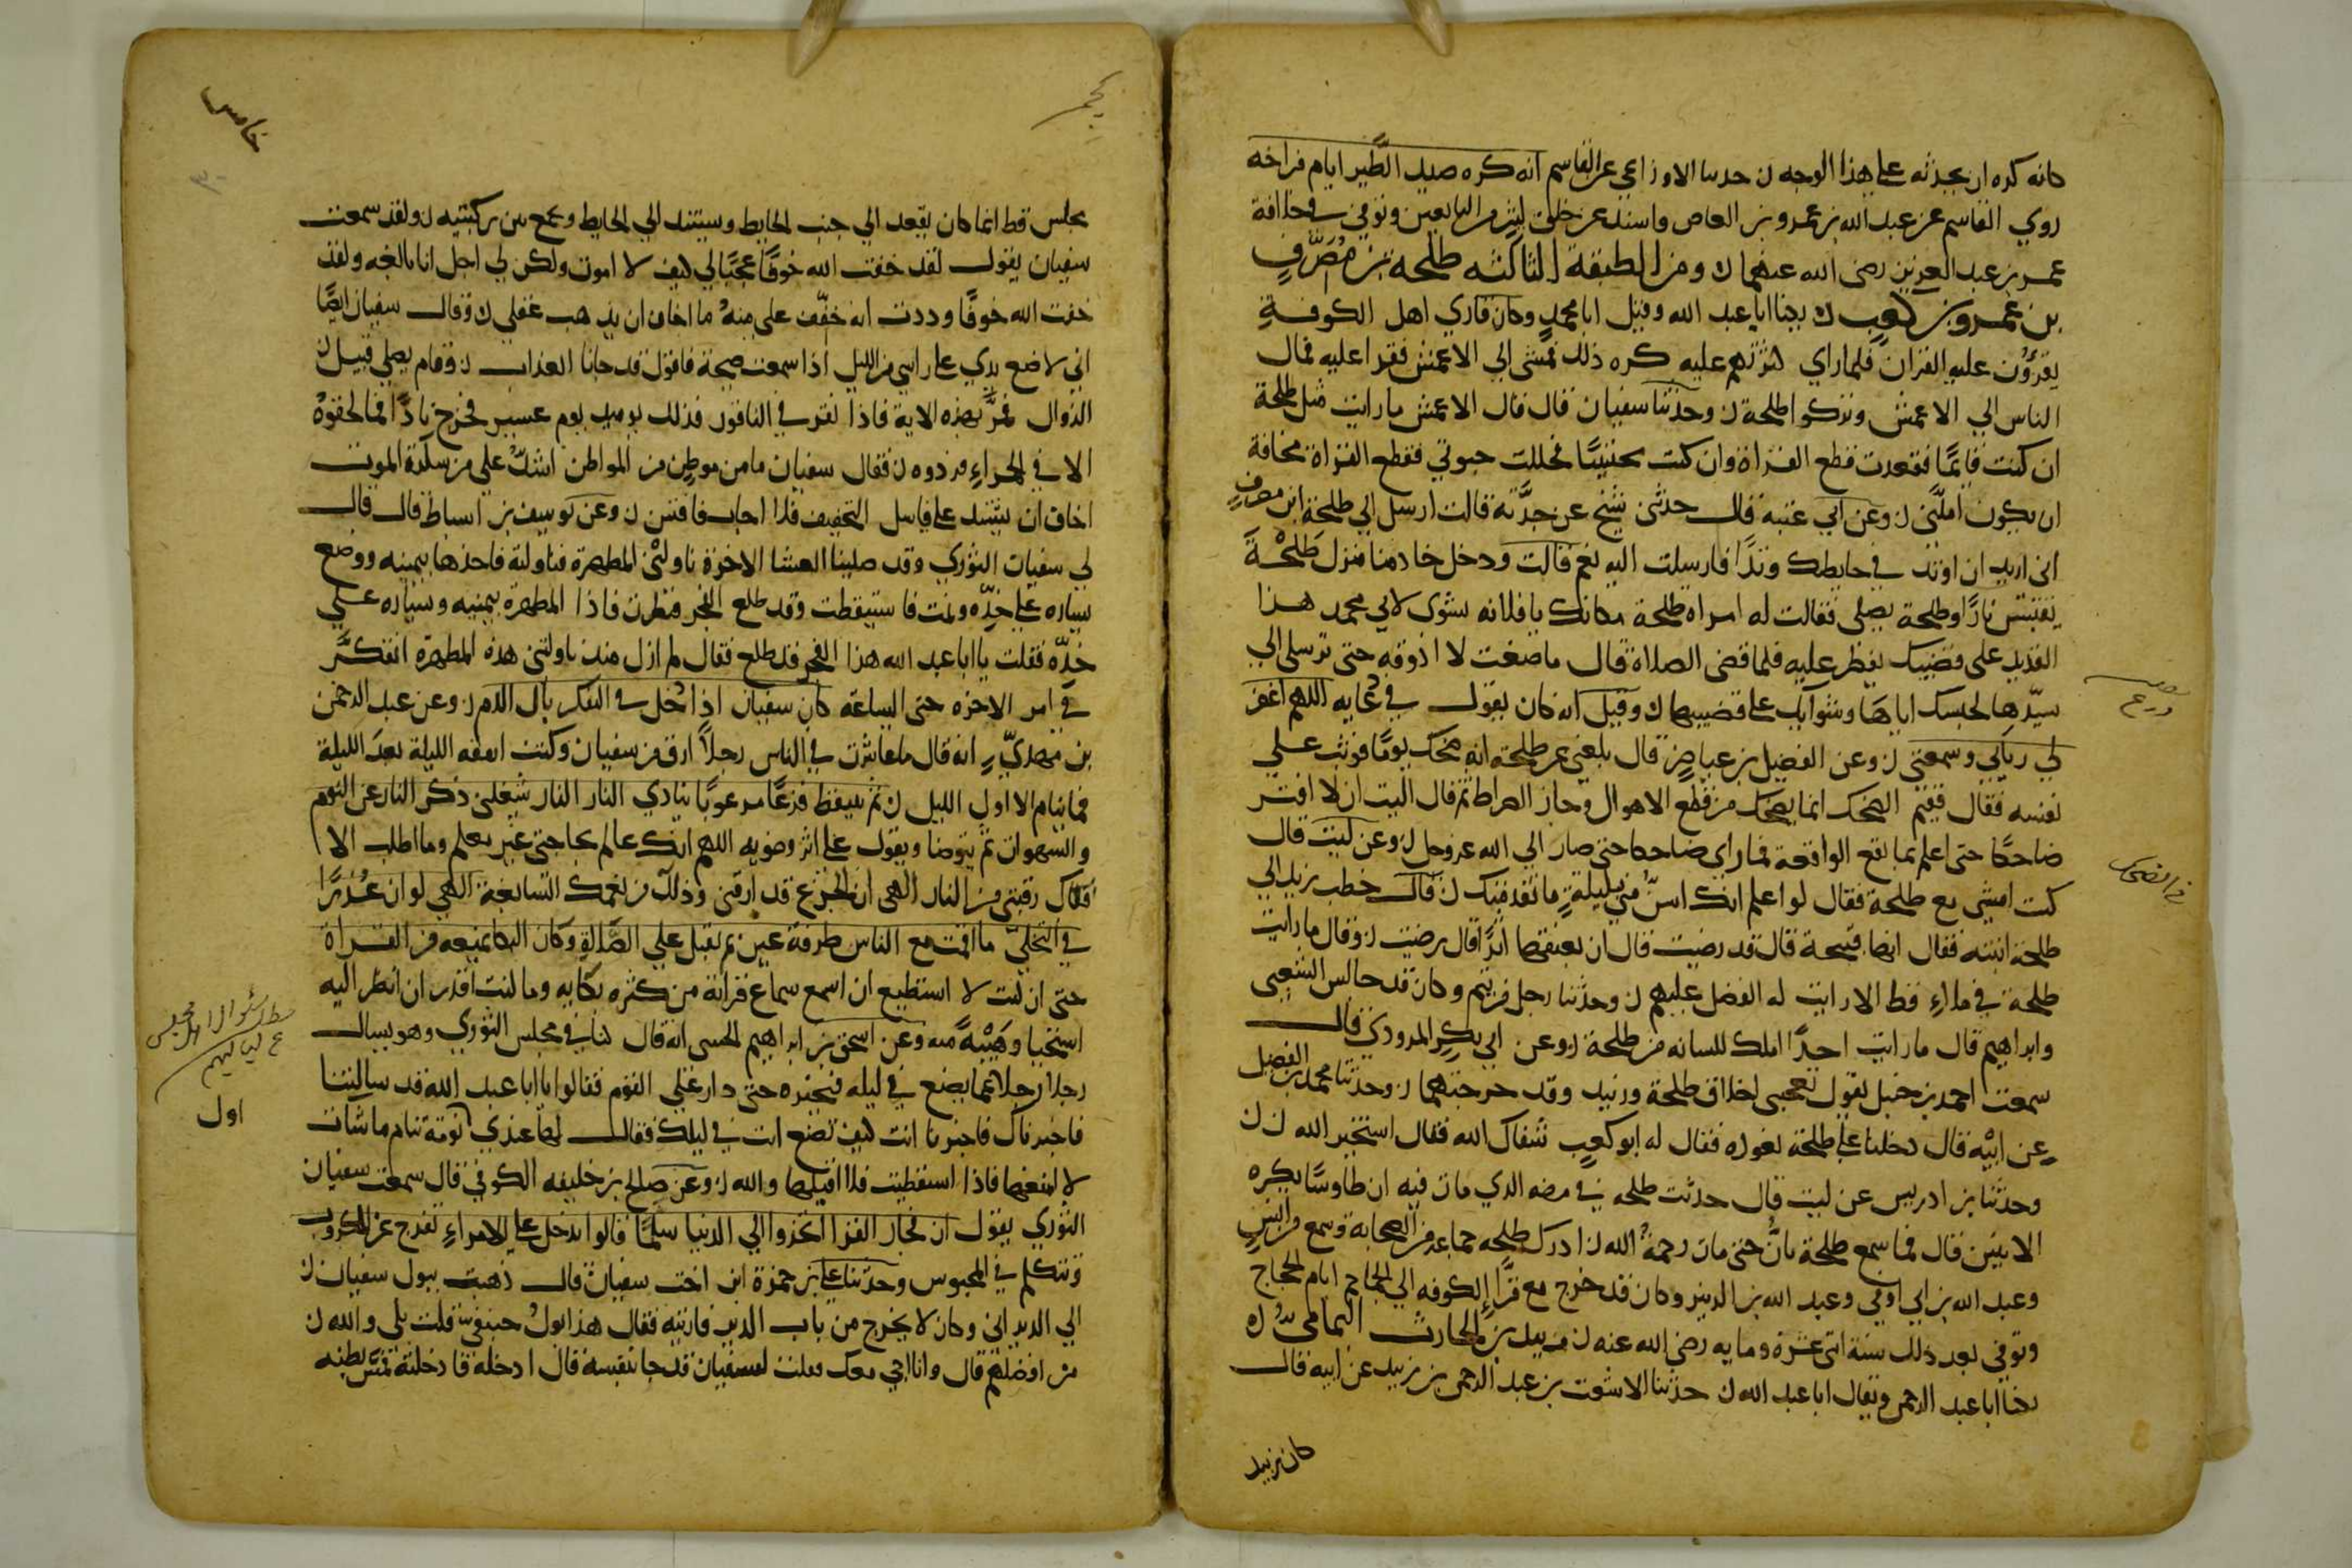 كانه كره ان يحدثه على هذا الوجه ن حدثنا الاوزاعي عن القاسم انه كره صيد الطير ايام فراخه
روي القاسم عن عبد الله بن عمرو بن العاص واسند عن خلق كثير من التابعين وتوفي في خلافة
عمر بن عبد العزيز رضي الله عنهما ن ومن الطبقة الثالثه طلحة بن مُصَرِّفٍ
بن عمرو بن كعب ن يكنا ابا عبد الله وقيل ابا محمدٍ وكان قاري اهل الكوفةِ
يقرؤن عليه القران فلما راي كثرتهم عليه كره ذلك فمشى الي الاعمش فقرا عليه فمال
الناس الي الاعمش وتركوا طلحة ن وحدثنا سفيان قال قال الاعمش ما رايت مثل طلحة
ان كنت قايمًا فقعدت قطع القراة وان كنت محتبيًا فحللت حبوتي قطع القراة مخافة
ان يكون املّني ن وعن ابي عتبه قال حدثني شيخ عن جدَّته قالت ارسل الي طلحة ابن مصرفٍ
اني اريد ان اوتد في حايطك وتدًا فارسلت اليه نعم قالت ودخل خادمنا منزل طلحةَ
يقتبس نارًا وطلحة يصلي فقالت له امراة طلحة مكانك يا فلانه نشوي لابي محمد هذا
القديد على قضيبك يفطر عليه فلما قضى الصلاة قال ما صنعت لا اذوقه حتى ترسلي الي
سيّدتها لحبسك اياها وشوايك على قضيبها ن وقيل انه كان يقول في دعايه اللهم اغفر
لي ريآيي وسمعتي ن وعن الفضيل بن عياض قال بلغني عن طلحة انه ضحك يومًا فوثب على
نفسه فقال ففيم الضحك انما يضحك من قطع الاهوال وجاز الصراط ثم قال آليت ان لا افتر
ضاحكًا حتى اعلم بما تقع الواقعة فما راي ضاحكا حتى صار الي الله عز وجل ن وعن ليث قال
كنت امشي مع طلحة فقال لو اعلم انك اسنّ مني بليلةٍ ما تقدمتك ن قال خطب زبيد الي
طلحة ابنته فقال انها قبيحة قال قد رضيت قال ان بعينها اثرًا قال رضيت ن وقال ما رايت
طلحة في ملاءٍ قط الا رايت له الفضل عليهم ن وحدثنا رجل قد جالس الشعبي
وابراهيم قال ما رايت احدًا املك للسانه من طلحة ن وعن ابي بكر المروذي قال
سمعت احمد بن حنبل يقول يعجبني اخلاق طلحة وزبيد ن وحدثنا محمد بن الفضل
عن ابيه قال دخلنا على طلحة نعوده فقال له ابو كعب شفاك الله فقال استخير الله ن
وحدثنا بن ادريس عن ليث قال حدثت طلحه في مرضه الذي مات فيه ان طاوسًا يكره
الانين قال فما سمع طلحة يانّ حتى مات رحمه الله ن ادرك طلحه جماعة من الصحابة وسمع من انسٍ
وعبد الله بن ابي اوفي وعبد الله بن الزبير وكان قد خرج مع قراء الكوفه الي الجماجم ايام الحجاج
وتوفي بعد ذلك سنة اثني عشرة ومايه رضي الله عنه ن زبيد بن الحارث اليامي
يكنا ابا عبد الرحمن ويقال ابا عبد الله ن حدثنا الاشعث بن عبد الرحمن بن زبيد عن ابيه قال
كان زبيد
خامس
يجلس قط انما كان يقعد الي جنب الحايط ويستند الي الحايط ويجمع بين ركبتيه ن ولقد سمعت
سفيان يقول لقد خفت الله خوفًا عجبًا لي كيف لا اموت ولكن لي اجل انا بالغه ولقد
خفت الله خوفًا وددت انه خفّف علي منهُ ما اخاف ان يذهب عقلي ن وقال سفيان ايضًا
اني لاضع يدي على راسي من الليل اذا سمعت صيحة فاقول قد جانا العذاب ن وقام يصلي قبيل
الزوال فمرّ بهذه الاية فاذا نقر في الناقور فذلك يوميذ يوم عسير فخرج نادًّا فما لحقوهُ
الا في الحراءِ فردوه ن فقال سفيان ما من موطنٍ من المواطن اشدّ علي من سكرة الموت
اخاف ان يشدد على فاسل التخفيف فلا اجاب فافتتن ن وعن يوسف بن اسباط قال قال
لي سفيان الثوري وقد صلينا العشا الاخرة ناولني المطهرة فناولته فاخذها بيمينه ووضع
يساره على خدّه ونمت فاستيقظت وقد طلع الفجر فنظرت فاذا المطهرة بيمينه ويساره على
خدّه فقلت يا ابا عبد الله هذا الفجر قد طلع فقال لم ازل منذ ناولتني هذه المطهرة اتفكر
في امر الاخره حتى الساعة كان سفيان اذا دخل في التفكر بال الدم ن وعن عبد الرحمن
بن مهديّ انه قال ما عاشرت في الناس رجلاً ارق من سفيان وكنت ارمقه الليلة بعد الليلة
فما ينام الا اول الليل ن ثم ينتفض فزعًا مرعوبًا ينادي النار النار شغلني ذكر النار عن النوم
والشهوات ثم يتوضا ويقول على اثر وضويه اللهم انك عالم بحاجتي غير معلم وما اطلب الا
فكاك رقبتي من النار الهي ان الجزع قد ارقني وذلك من نعمك السابغة الهي لو ان عُذرًا
في التخلي ما اقمت مع الناس طرفة عين ثم يقبل علي الصلاة وكان البكا يمنعه من القراة
حتى ان كنت لا استطيع ان اسمع سماع قراته من كثره بكايه وما كنت اقدر ان انظر اليه
استحيا وهيبةً منه وعن اسحق بن ابراهيم قال كنا في مجلس الثوري وهو يسال
رجلا رجلا عما يصنع في ليله فيخبره حتى دار علي القوم فقالوا يا ابا عبد الله قد سالتنا
فاخبرناك فاخبرنا انت كيف تصنع انت في ليلك فقال لها عندي نومة تنام ما شات
لا امنعها فاذا استيقظت فلا اقيلها والله ن وعن صالح بن خليفه الكوفي قال سمعت سفيان
الثوري يقول ان فجار القرا اتخذوا الي الدنيا سلمًا قالوا ندخل على الامراءِ نفرج عن المكروب
ونتكلم في المحبوس وحدثنا علي بن حمزة ابن اخت سفيان قال ذهبت ببول سفيان
الي الديراني وكان لا يخرج من باب الدير فاريته فقال هذا بول حنيفي قلت بلي والله
من افضلهم قال وانا اجي معك فقلت لسفيان قد جا بنفسه قال ادخله فادخلته فمسّ بطنه
اول